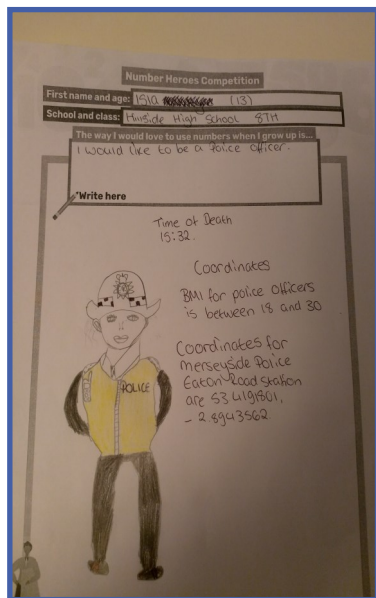 Number Heroes Competition
First name and age: Isla (13)
School and class: Hillside High School 8TH
The way I would love to use numbers when I grow up is...
I would like to be a Police officer.
*Write here
Time of Death
15:32.
Coordinates
BMI for police officers
is between 18 and 30
Coordinates for
Merseyside Police
Eaton Road Station
are 53.4191801,
- 2.8943562
POLICE